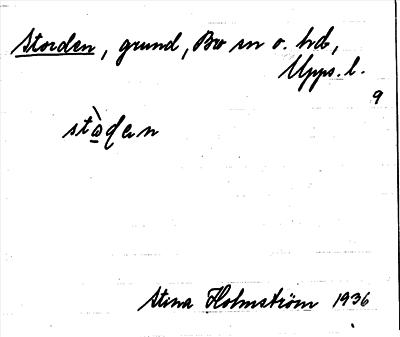 Storden, grund, Bro sn o. hd,
Upps. l.
9
stòden
Stina Holmström 1936